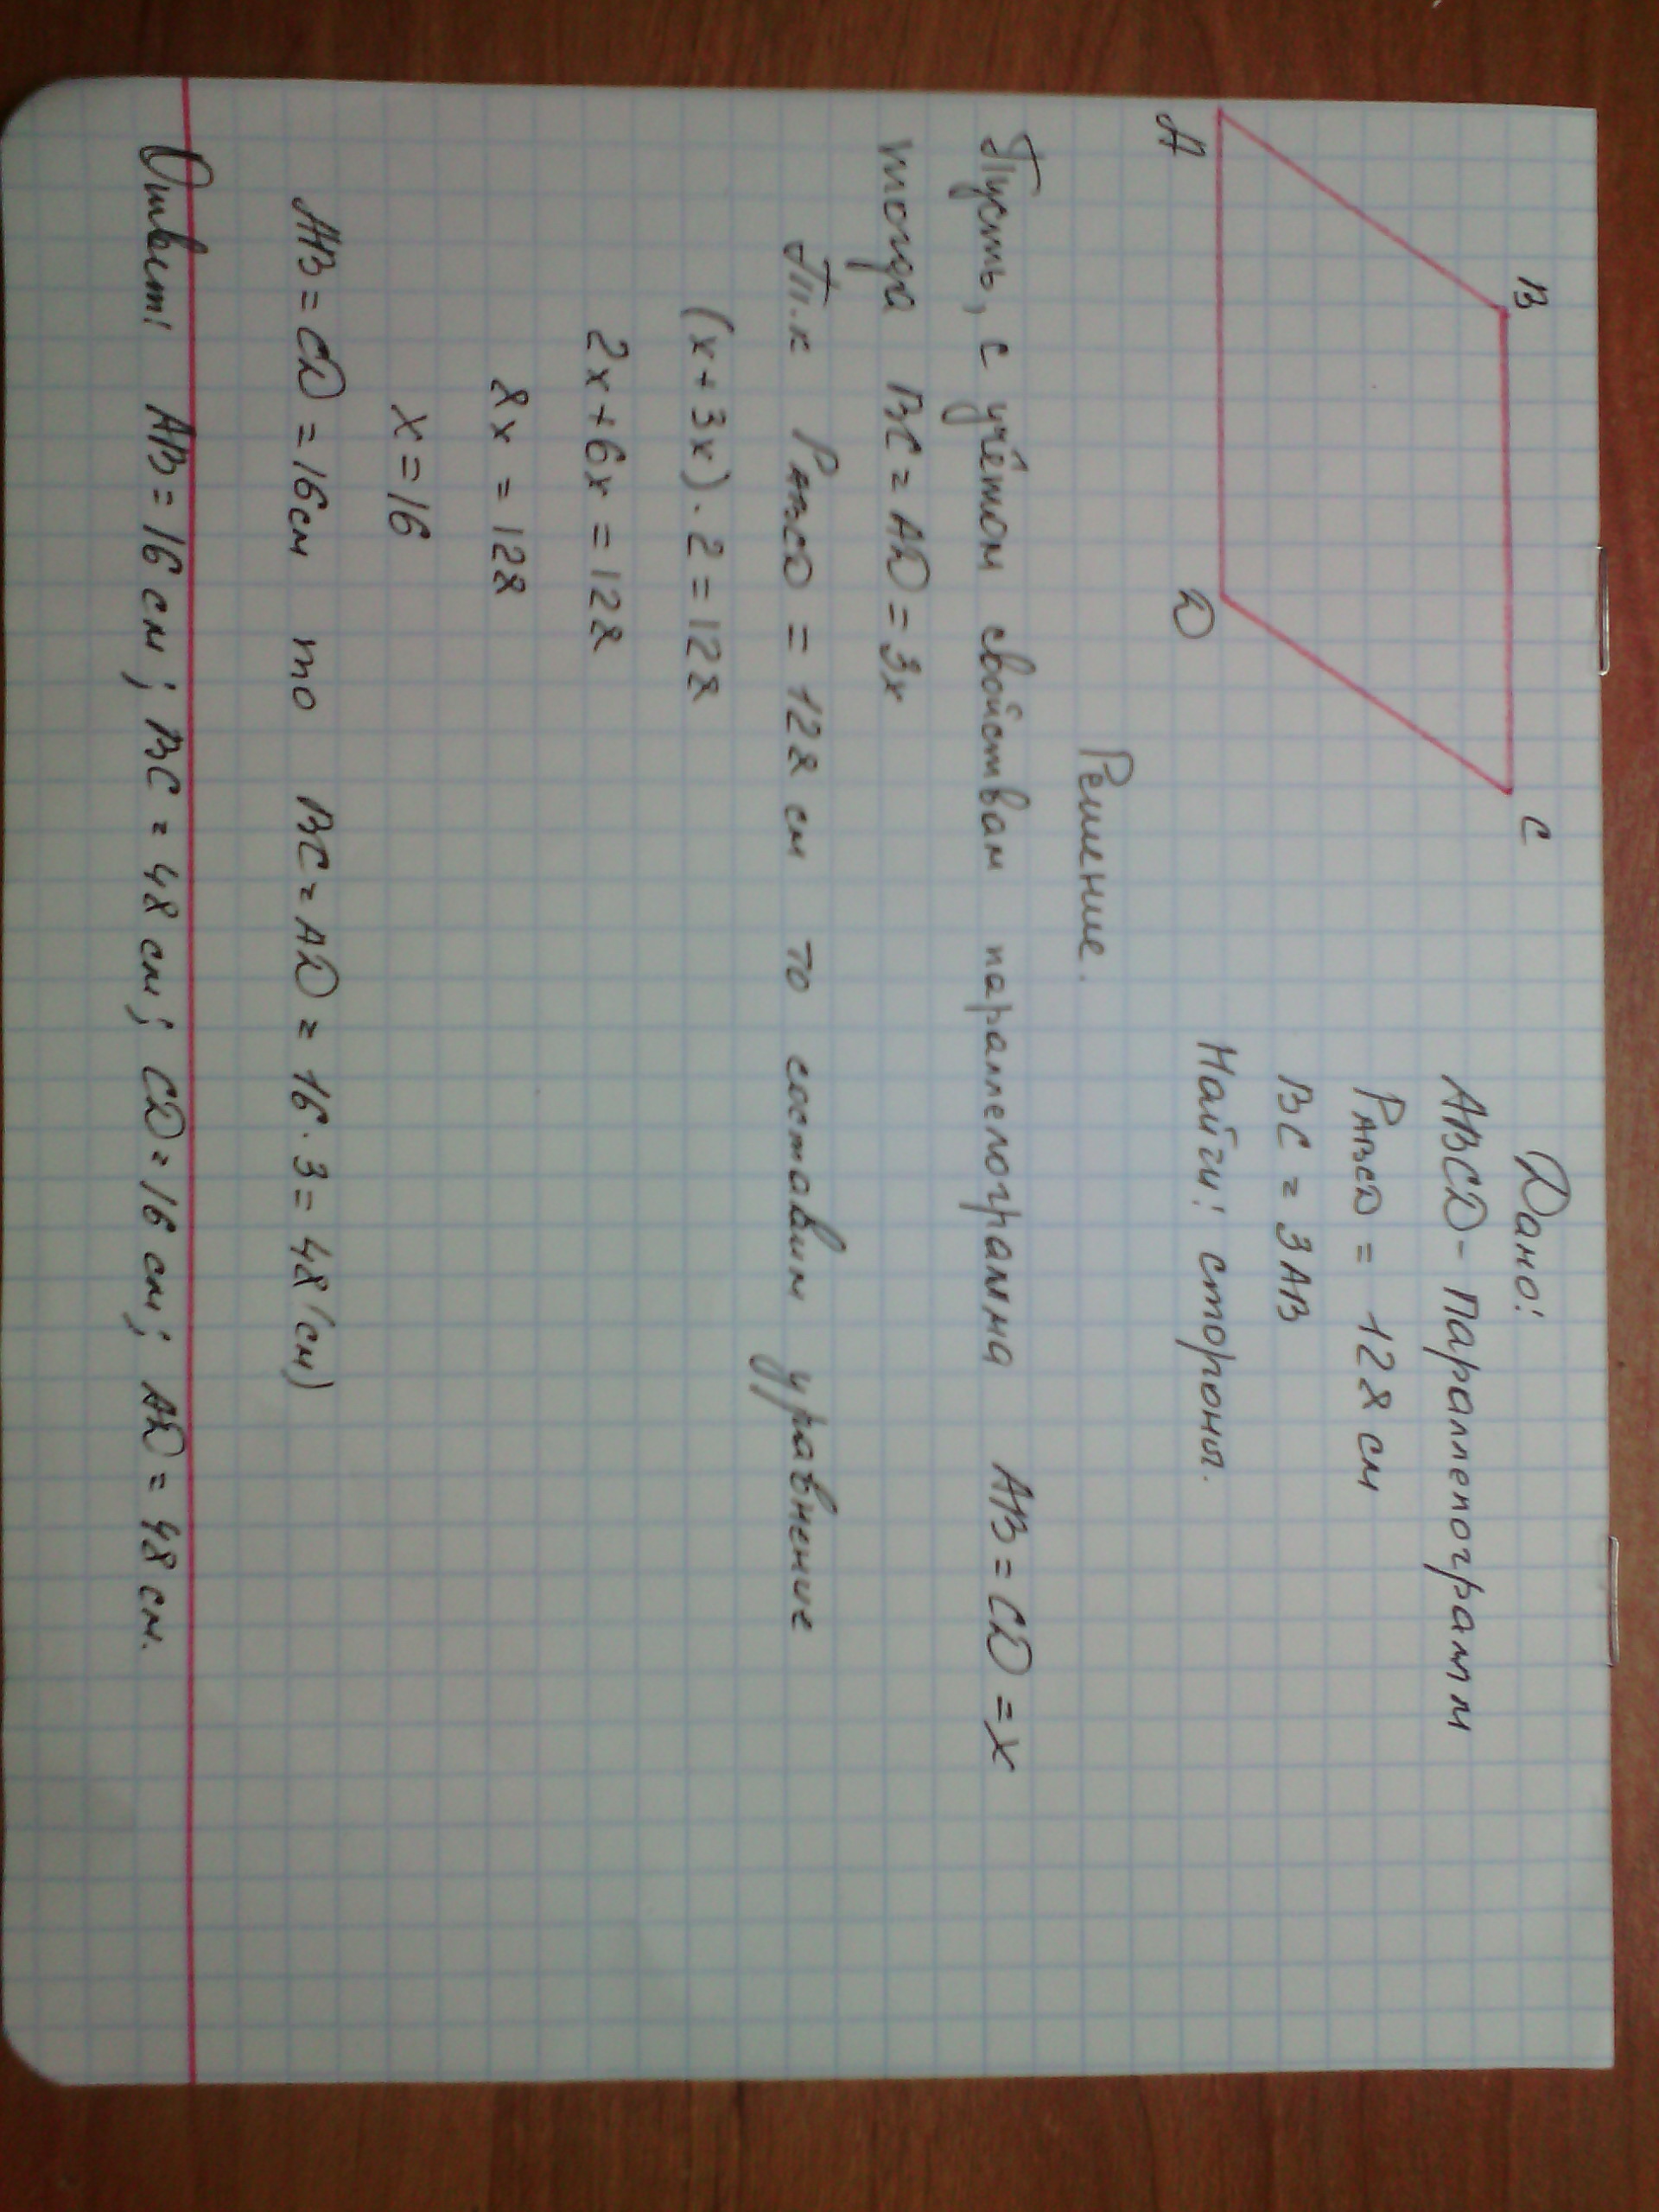 B
C
A
D
Дано:
ABCD - Параллелограмм
PABCD = 128 см
BC = 3AB
Найти: стороны.
Решение.
Пусть, с учётом свойствам параллелограмма AB = CD = x
тогда BC = AD = 3x
Т.к PABCD = 128 см то составим уравнение
(x + 3x) · 2 = 128
2x + 6x = 128
8x = 128
x = 16
AB = CD = 16см то BC = AD = 16 · 3 = 48 (см)
Ответ: AB = 16 см; BC = 48 см; CD = 16 см; AD = 48 см.